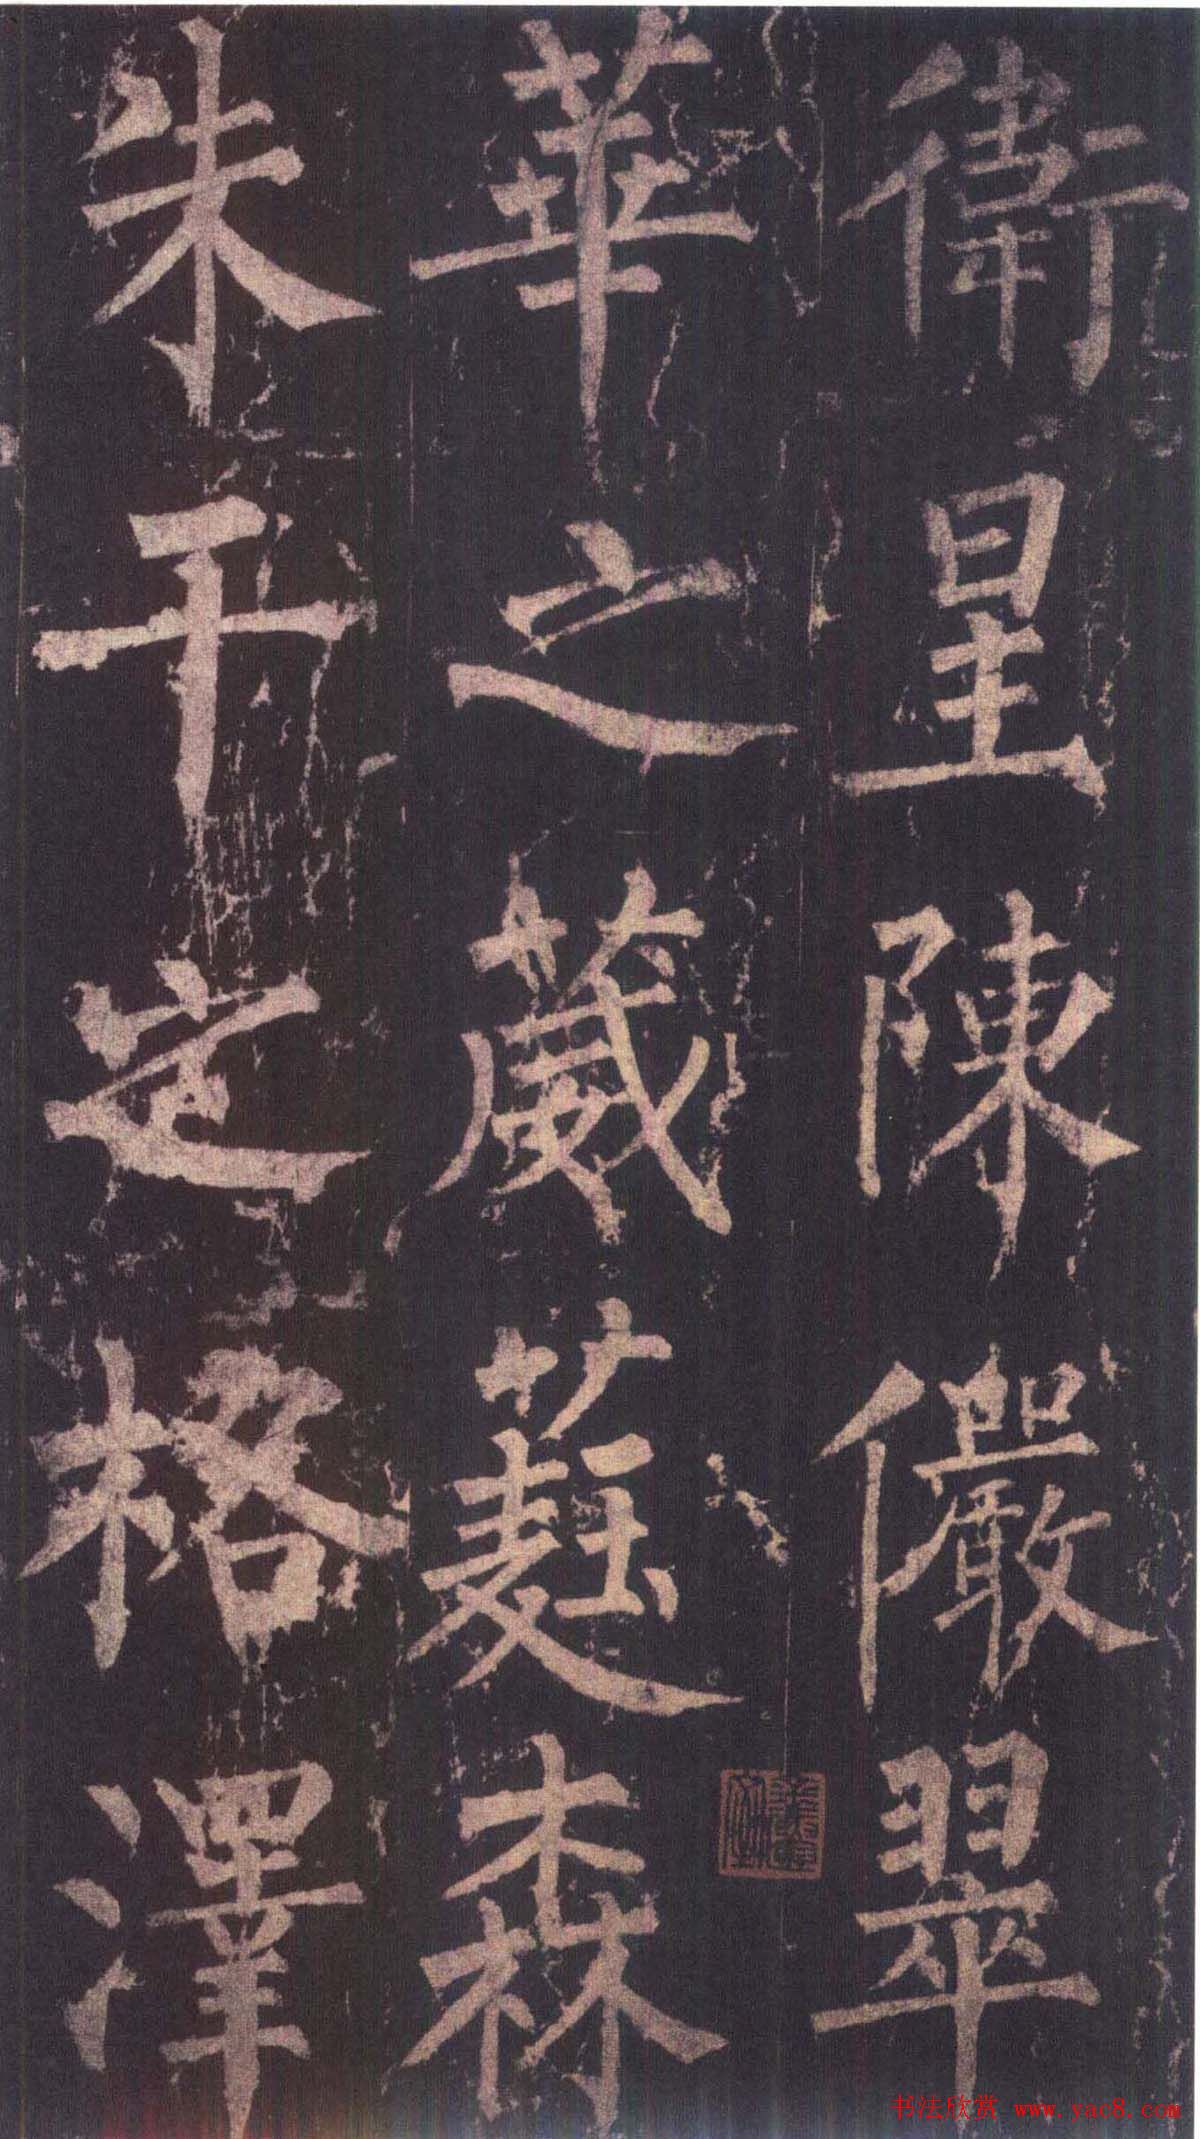 衛星陳儼翠
華之葳蕤森
朱干之格澤
书法欣赏 www.yac8.com